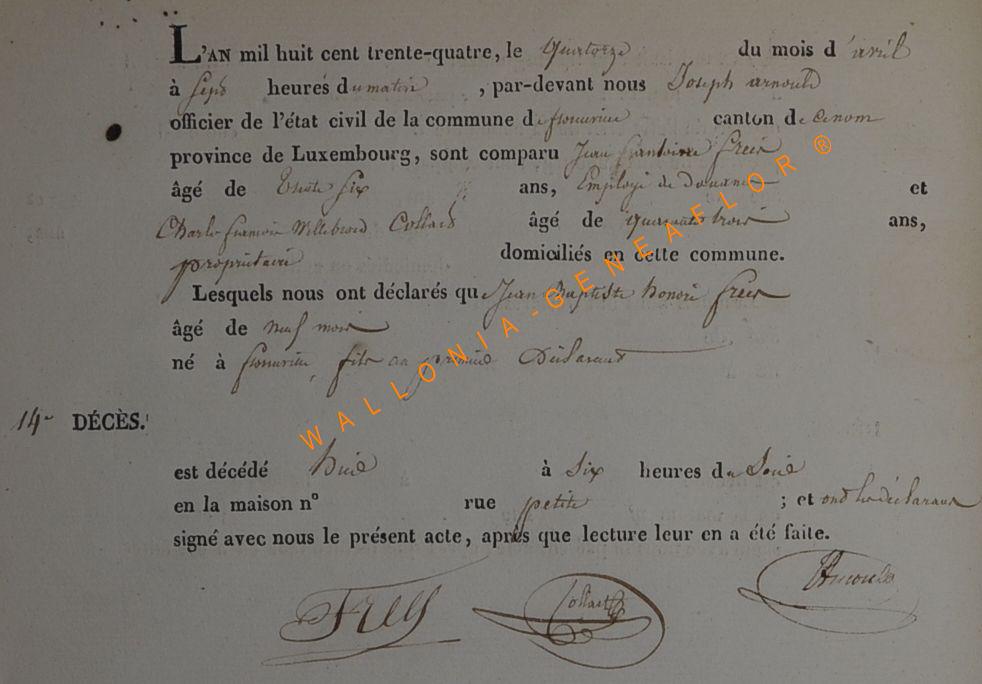 L'AN mil huit cent trente-quatre, le quatorze du mois d'avril
à sept heures du matin, par-devant nous Joseph arnould
officier de l'état civil de la commune de florenville canton de
province de Luxembourg, sont comparu Jean
âgé de trente Six ans, Employé de Douane et
Charle françois Willebrord Collard âgé de quarante trois ans,
propriétaire domiciliés en cette commune.
Lesquels nous ont déclarés que Jean Baptiste honoré
âgé de neuf mois
né à florenville, fils du premier Déclarant
14e DÉCÈS.
est décédé hier à Six heures du Soir
en la maison n° rue petite ; et ont les déclarans
signé avec nous le présent acte, après que lecture leur en a été faite.
Collard Arnould
WALLONIA-GENEAFLOR ®